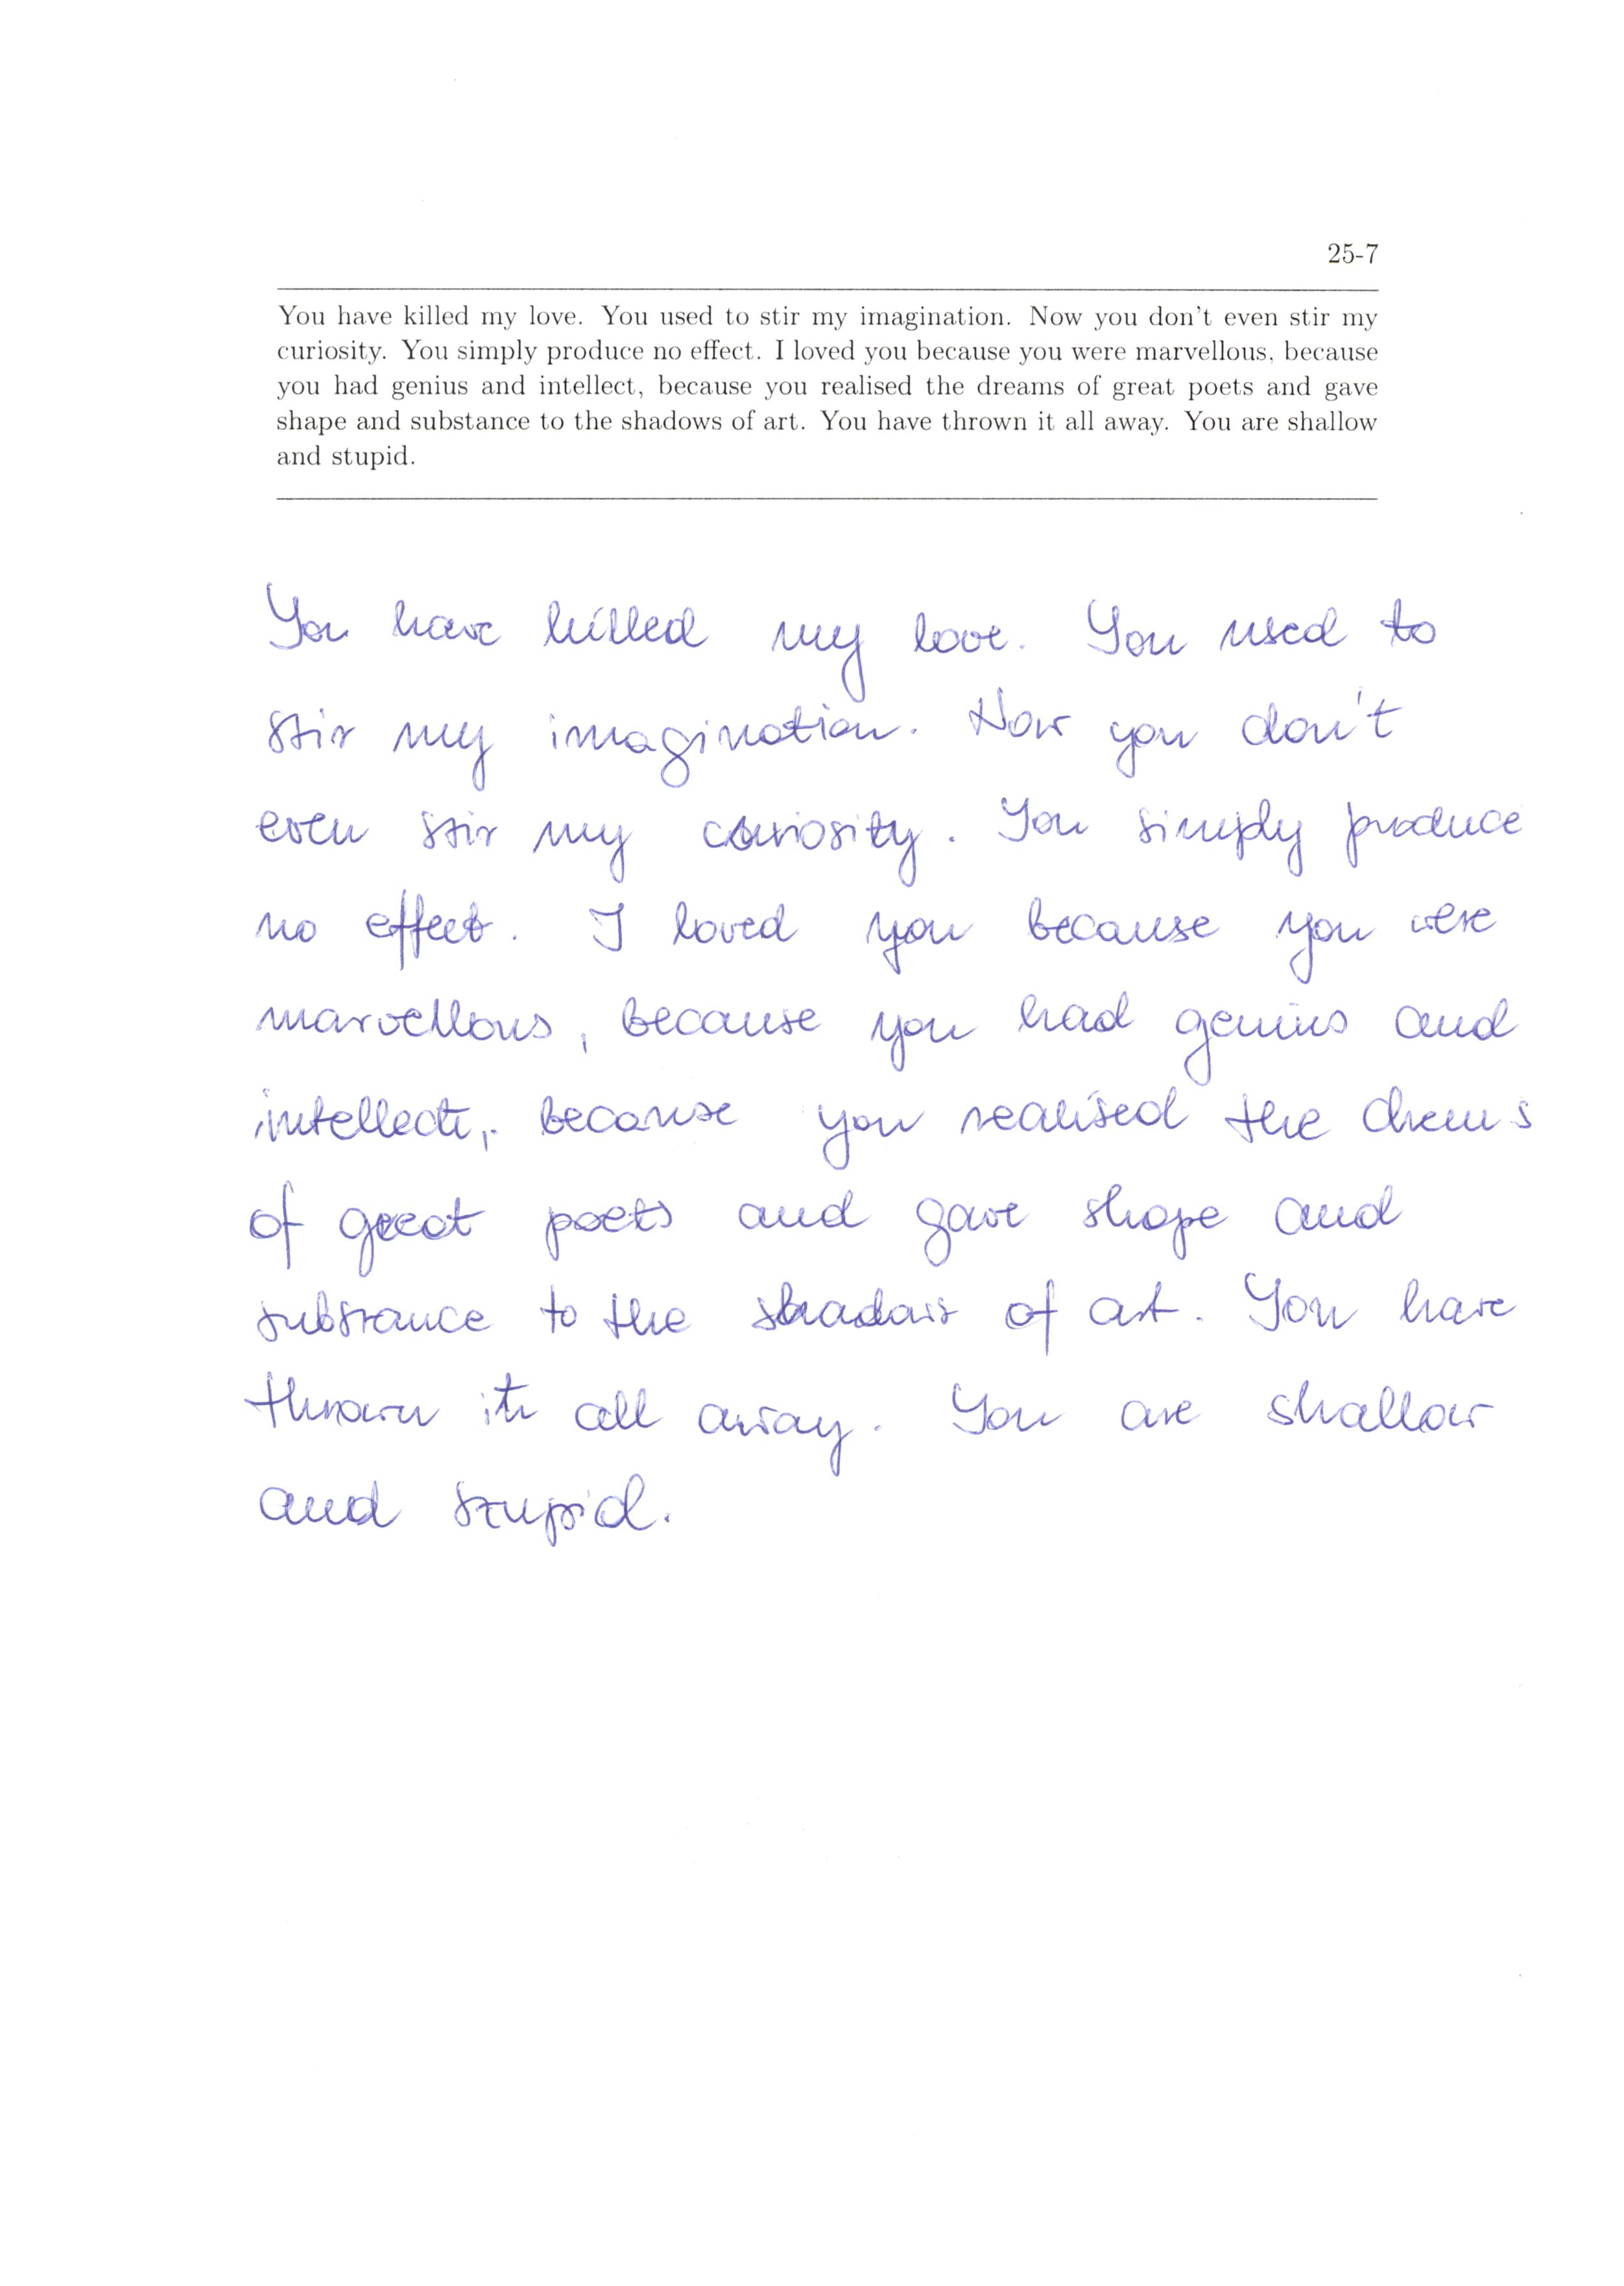 25-7
You have killed my love. You used to stir my imagination. Now you don't even stir my
curiosity. You simply produce no effect. I loved you because you were marvellous, because
you had genius and intellect, because you realised the dreams of great poets and gave
shape and substance to the shadows of art. You have thrown it all away. You are shallow
and stupid.
You have killed my love. You used to
stir my imagination. Now you don't
even stir my curiosity. You simply produce
no effect. I loved you because you were
marvellous, because you had genius and
intellect, because you realised the drems
of great poets and gave shape and
substance to the shadows of art. You have
thrown it all away. You are shallow
and stupid.